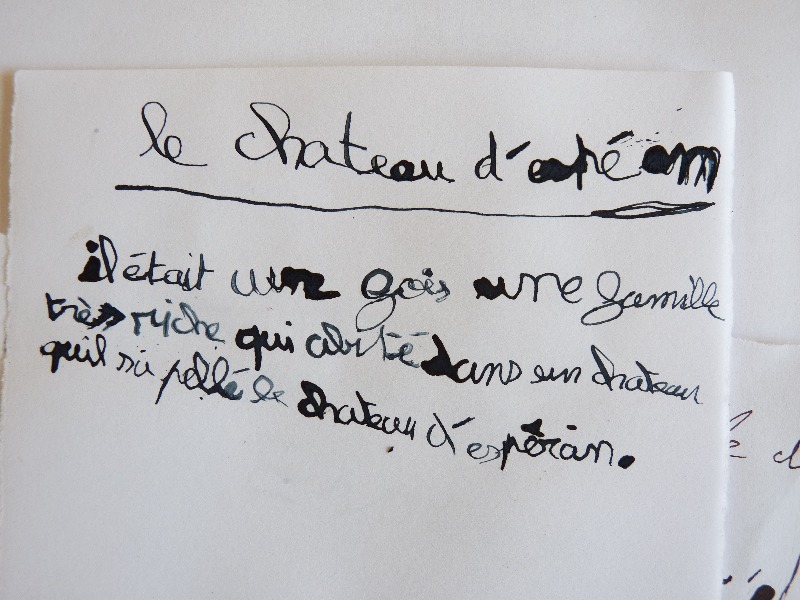 le chateau d'espéran
il était une fois une famille
très riche qui abité dans un chateau
quil s'a pellé le chateau d'espéran.